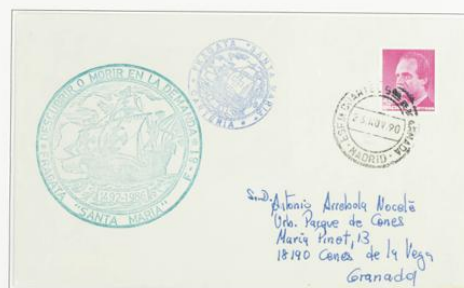 DESCUBRIR O MORIR EN LA DEMANDA
FRAGATA "SANTA MARIA"
1492-1986
FRAGATA "SANTA MARIA"
CARTERIA
MADRID
Antonio Arrebola Nocete
Urb. Parque de Cenes
María Pinet, 13
18190 Cenes de la Vega
Granada